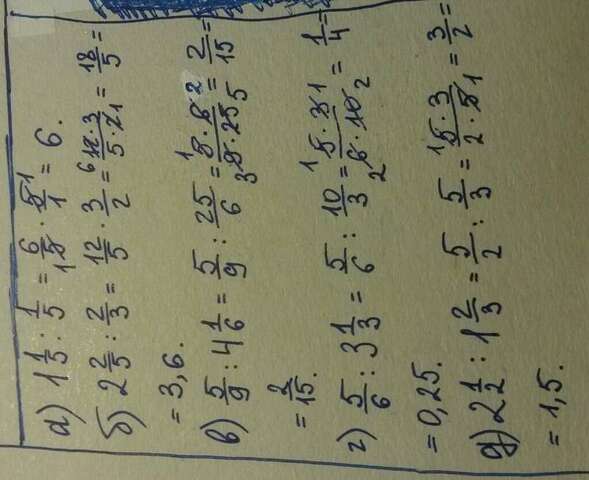 а) 1 1/5 : 1/5 = 6/5 · 5/1 = 6.
б) 2 2/5 : 2/3 = 12/5 · 3/2 = 12·3/5·2 = 18/5 =
= 3,6.
в) 5/9 : 4 1/6 = 5/9 : 25/6 = 5·6/9·25 = 2/15 =
= 2/15.
г) 5/6 : 3 1/3 = 5/6 : 10/3 = 5·3/6·10 = 1/4 =
= 0,25.
д) 2 1/2 : 1 2/3 = 5/2 : 5/3 = 5·3/2·5 = 3/2 =
= 1,5.